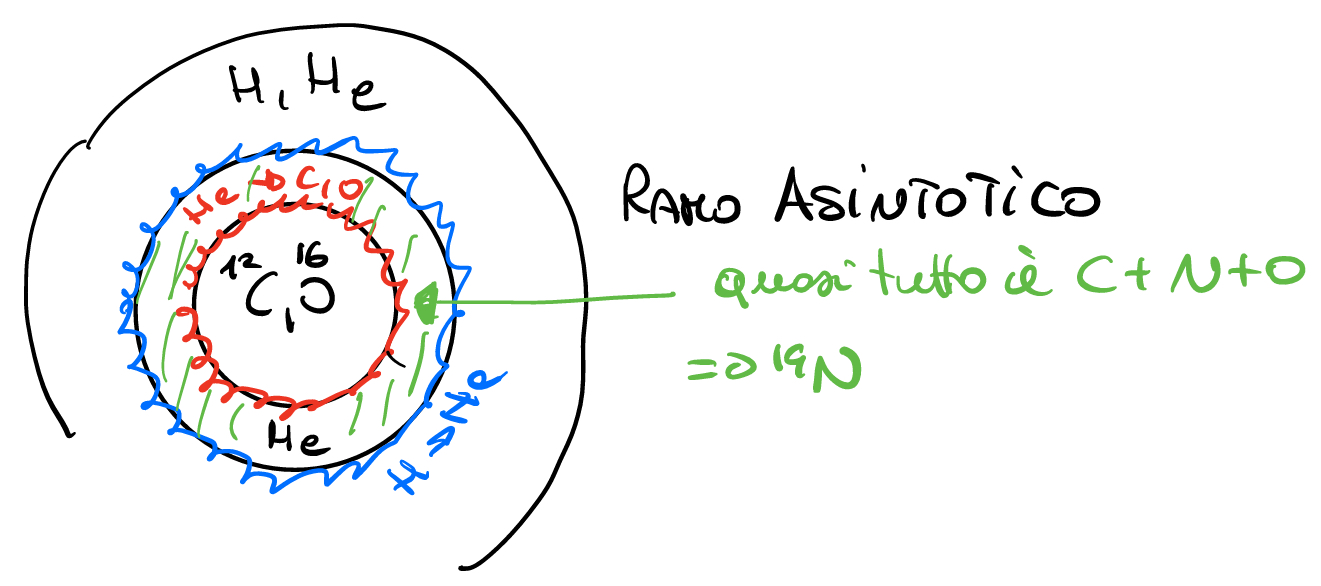 H, He
He → C, O
¹²C, ¹⁶O
He
H → He
RAMO ASINTOTICO
quasi tutto è C + N + O
⇒ ¹⁴N